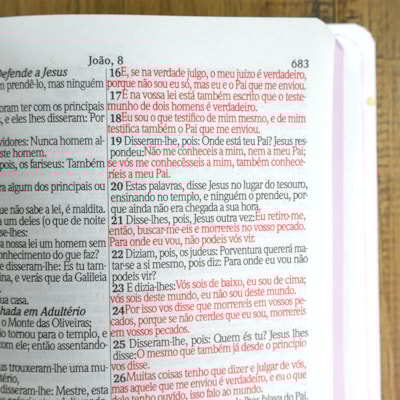 João, 8
683
Defende a Jesus
prendê-lo, mas ninguém
oram ter com os principais
, e eles lhes disseram: Por
vidores: Nunca homem al-
ste homem.
, pois, os fariseus: Também
ra algum dos principais ou
ue não sabe a lei, é maldita.
um deles (o que de noite
se-lhes:
a nossa lei um homem sem
onhecimento do que faz?
e disseram-lhe: És tu tam-
na, e verás que da Galileia
ua casa.
hada em Adultério
o Monte das Oliveiras;
lo tornou para o templo, e
com ele; entou assentando-
us trouxeram-lhe uma mu-
tério,
disseram-lhe: Mestre, esta
16E, se na verdade julgo, o meu juízo é verdadeiro,
porque não sou eu só, mas eu e o Pai que me enviou.
17E na vossa lei está também escrito que o teste-
munho de dois homens é verdadeiro.
18Eu sou o que testifico de mim mesmo, e de mim
testifica também o Pai que me enviou.
19 Disseram-lhe, pois: Onde está teu Pai? Jesus res-
pondeu:Não me conheceis a mim, nem a meu Pai;
se vós me conhecêsseis a mim, também conhece-
ríeis a meu Pai.
20 Estas palavras, disse Jesus no lugar do tesouro,
ensinando no templo, e ninguém o prendeu, por-
que ainda não era chegada a sua hora.
21 Disse-lhes, pois, Jesus outra vez: Eu retiro-me,
então, buscar-me-eis e morrereis no vosso pecado.
Para onde eu vou, não podeis vós vir.
22 Diziam, pois, os judeus: Porventura quererá ma-
tar-se a si mesmo, pois diz: Para onde eu vou não
podeis vir?
23 E dizia-lhes:Vós sois de baixo, eu sou de cima;
vós sois deste mundo, eu não sou deste mundo.
24Por isso vos disse que morrereis em vossos pe-
cados, porque se não crerdes que eu sou, morrereis
em vossos pecados.
25 Disseram-lhe, pois: Quem és tu? Jesus lhes
disse:O mesmo que também já desde o princípio
vos disse.
26Muitas coisas tenho que dizer e julgar de vós,
mas aquele que me enviou é verdadeiro, e eu o que
dele tenho ouvido, isso falo ao mundo.